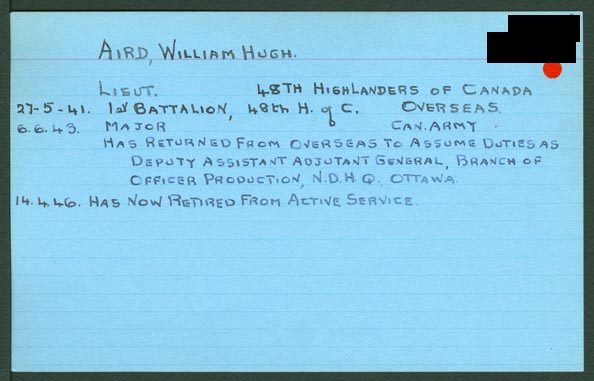 AIRD, WILLIAM HUGH.
LIEUT. 48TH HIGHLANDERS OF CANADA
27-5-41. 1st BATTALION, 48th H. of C. OVERSEAS.
6.6.43. MAJOR CAN. ARMY
HAS RETURNED FROM OVERSEAS TO ASSUME DUTIES AS
DEPUTY ASSISTANT ADJUTANT GENERAL, BRANCH OF
OFFICER PRODUCTION, N.D.H.Q., OTTAWA.
14.4.46. HAS NOW RETIRED FROM ACTIVE SERVICE.